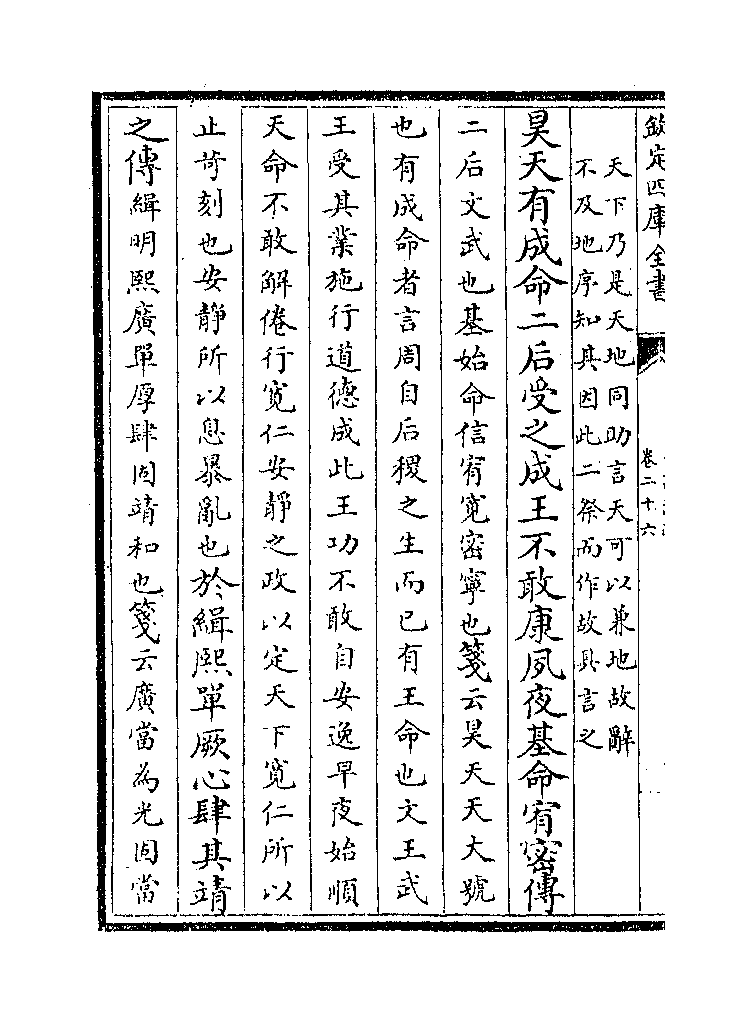 欽定四庫全書
卷二十六
天下乃是天地同助言天可以兼地故辭
不及地序知其因此二祭而作故具言之
昊天有成命二后受之成王不敢康夙夜基命宥密傳
二后文武也基始命信宥寛密寧也箋云昊天天大號
也有成命者言周自后稷之生而已有王命也文王武
王受其業施行道德成此王功不敢自安逸早夜始順
天命不敢解倦行寛仁安靜之政以定天下寛仁所以
止苛刻也安靜所以息暴亂也於緝熙單厥心肆其靖
之傳緝明熙廣單厚肆固靖和也箋云廣當為光固當